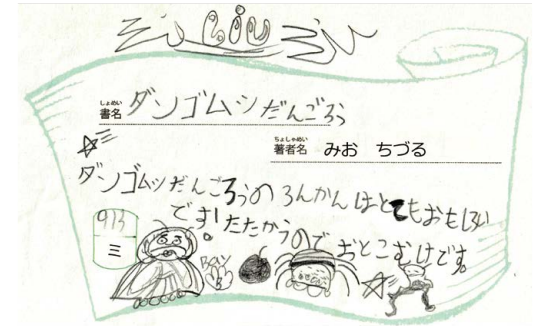 しょめい
書名 ダンゴムシだんごろう
ちょしゃめい
著者名 みお ちづる
ダンゴムシだんごろうの3かんはとてもおもしろい
です!たたかうので
おとこむけです。
913
ミ